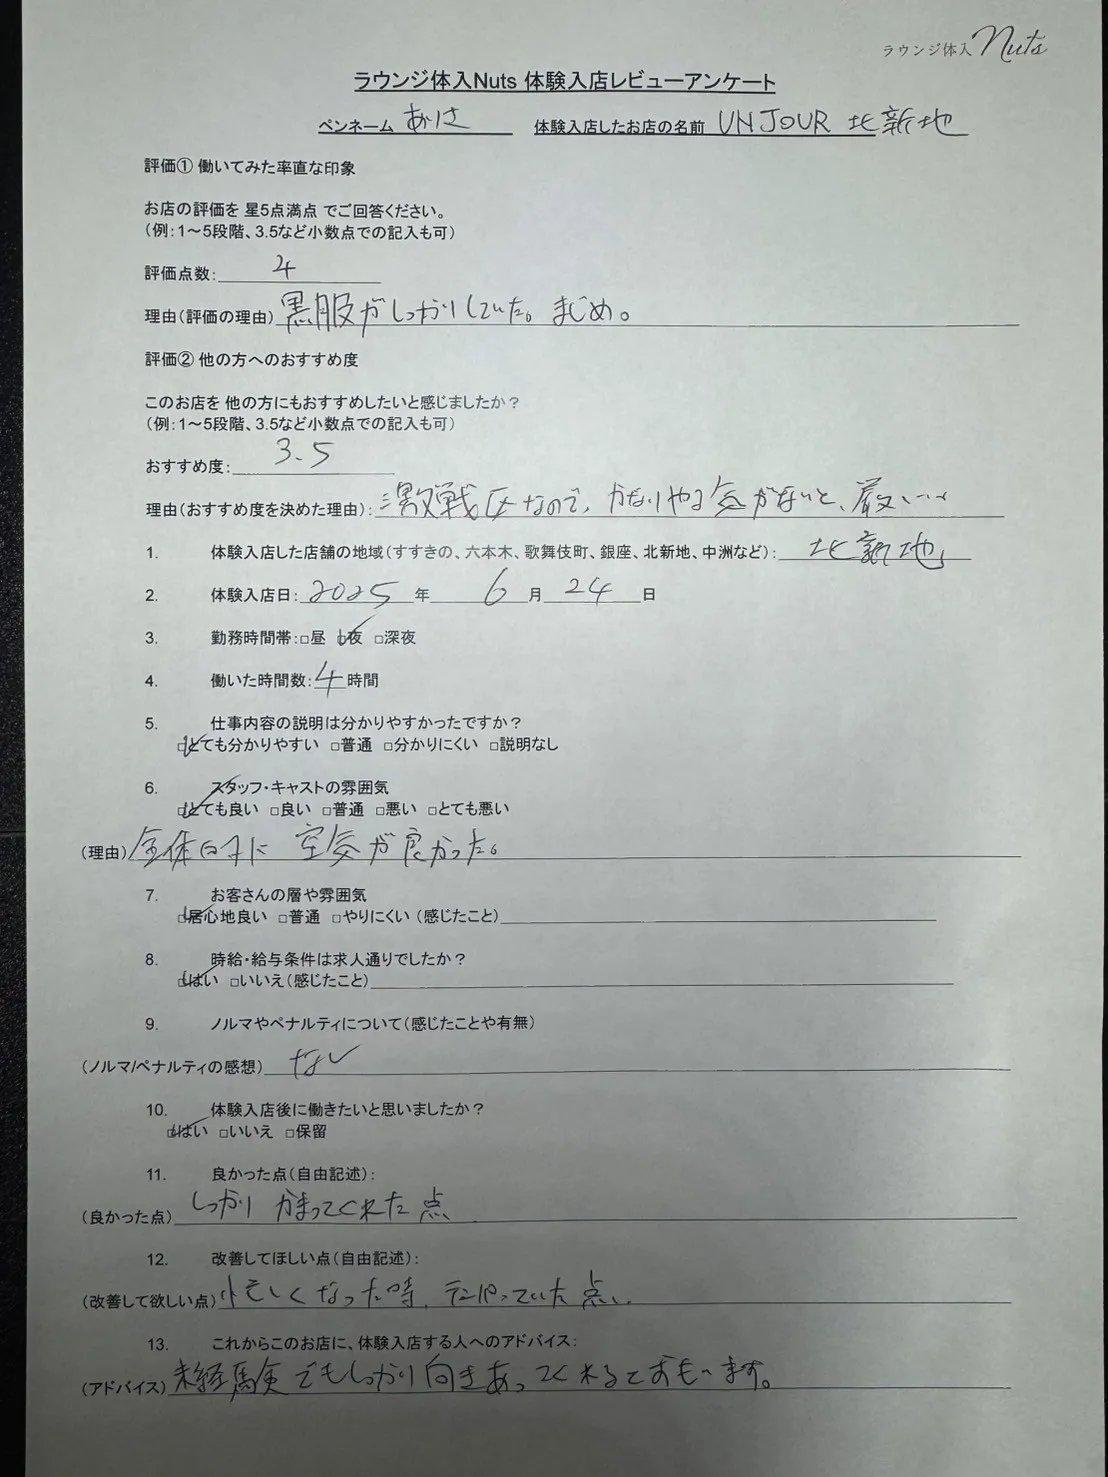 ラウンジ体入 Nuts
ラウンジ体入Nuts 体験入店レビューアンケート
ペンネーム あげさ 体験入店したお店の名前 UN JOUR 北新地
評価① 働いてみた率直な印象
お店の評価を 星5点満点 でご回答ください。
（例：1～5段階、3.5など小数点での記入も可）
評価点数： 4
理由（評価の理由） 黒服がしっかりしていた。まじめ。
評価② 他の方へのおすすめ度
このお店を 他の方にもおすすめしたいと感じましたか？
（例：1～5段階、3.5など小数点での記入も可）
おすすめ度： 3.5
理由（おすすめ度を決めた理由）： 激戦区なので、かなりやる気がないと、厳しい
1. 体験入店した店舗の地域（すすきの、六本木、歌舞伎町、銀座、北新地、中洲など）： 北新地
2. 体験入店日： 2025 年 6 月 24 日
3. 勤務時間帯：□昼 □夜 □深夜
4. 働いた時間数： 4 時間
5. 仕事内容の説明は分かりやすかったですか？
□とても分かりやすい □普通 □分かりにくい □説明なし
6. スタッフ・キャストの雰囲気
□とても良い □良い □普通 □悪い □とても悪い
（理由） 全体的に 空気が良かった。
7. お客さんの層や雰囲気
□居心地良い □普通 □やりにくい （感じたこと）
8. 時給・給与条件は求人通りでしたか？
□はい □いいえ（感じたこと）
9. ノルマやペナルティについて（感じたことや有無）
（ノルマ/ペナルティの感想） なし
10. 体験入店後に働きたいと思いましたか？
□はい □いいえ □保留
11. 良かった点（自由記述）：
（良かった点） しっかり かまってくれた点
12. 改善してほしい点（自由記述）：
（改善して欲しい点） 忙しくなった時、テンパっていた点。
13. これからこのお店に、体験入店する人へのアドバイス：
（アドバイス） 未経験でもしっかり向きあってくれるとおもいます。